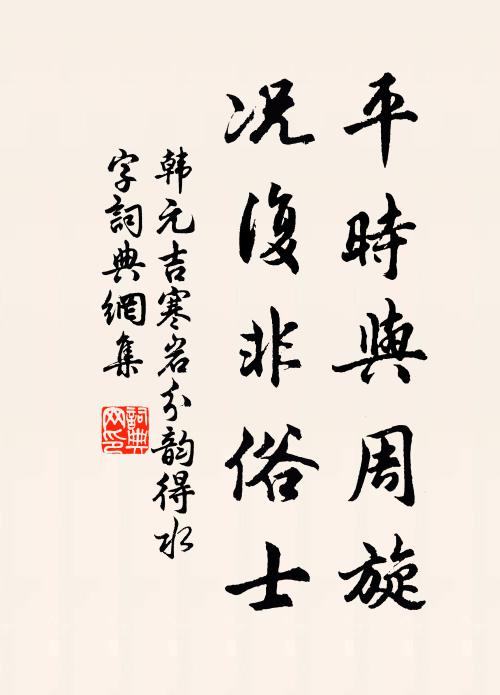 平時與周旋
况復非俗士
韩元吉寒岩分韵得水
字詞典網集
詞典网印